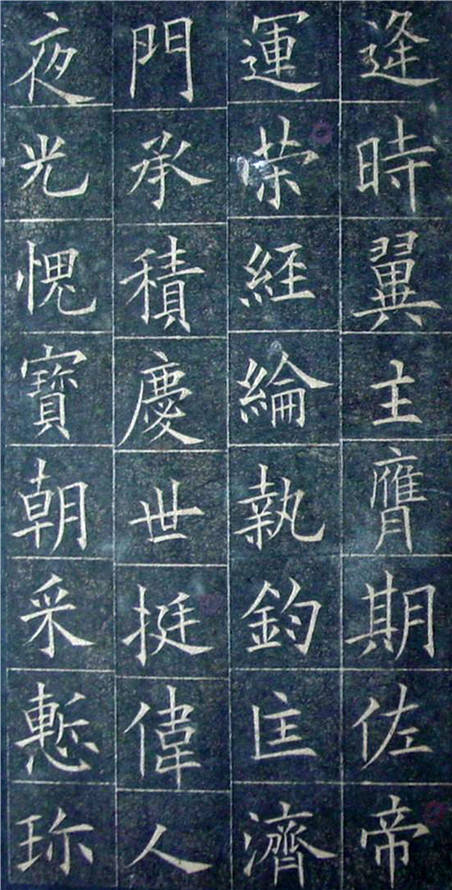 逢時翼主膺期佐帝
運荣經綸執鈞匡濟
門承積慶世挺偉人
夜光愧寶朝采慙珎